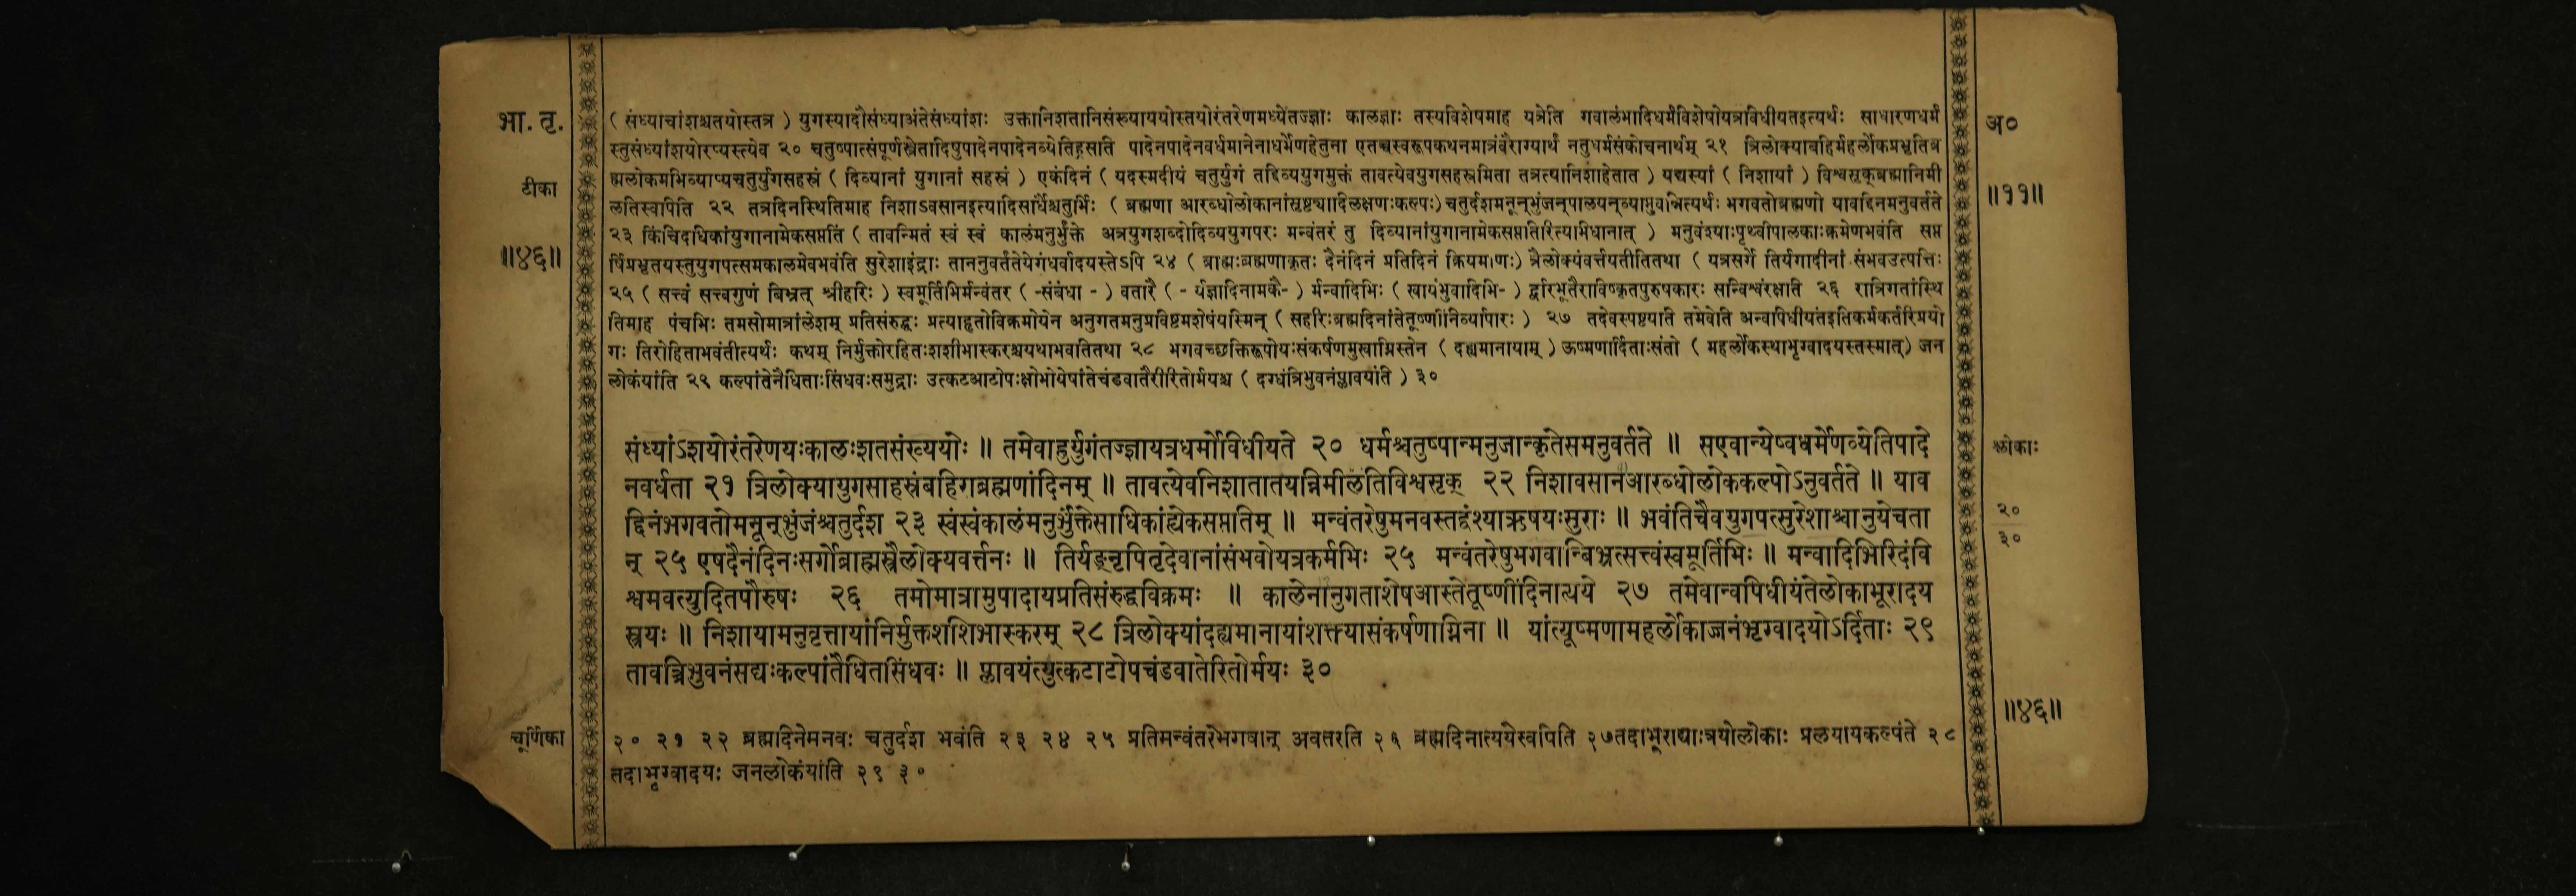 भा. तृ.
टीका
॥४६॥
( संध्याचांशश्चतयोस्तत्र ) युगस्यादौसंध्याअंतेसंध्यांशः उक्तानिशतानिसंख्याययोस्तयोरंतरेणमध्येतज्ज्ञाः कालज्ञाः तस्यविशेषमाह यत्रेति गवालंभादिधर्मविशेषोयत्रविधीयतइत्यर्थः साधारणधर्म
स्तुसंध्यांशयोरप्यस्त्येव २० चतुष्पात्संपूर्णस्त्रेतादिषुपादेनपादेनव्येतिह्रसति पादेनपादेनवर्धमानेनाधर्मेणहेतुना एतच्चस्वरूपकथनमात्रंवैराग्यार्थं नतुधर्मसंकोचनार्थम् २१ त्रिलोक्याबहिर्महर्लोकप्रभृतिब्र
ह्मलोकमभिव्याप्यचतुर्युगसहस्रं ( दिव्यानां युगानां सहस्रं ) एकंदिनं ( यदस्मदीयं चतुर्युगं तद्दिव्ययुगमुक्तं तावत्येवयुगसहस्रमिता तत्रत्यानिशाहेतात ) यद्यस्यां ( निशायां ) विश्वसृक्ब्रह्मानिमी
लतिस्वपिति २२ तत्रदिनस्थितिमाह निशाऽवसानइत्यादिसार्धैश्चतुर्भिः ( ब्रह्मणा आरब्धोलोकानांसृष्ट्यादिलक्षणःकल्पः) चतुर्दशमनून्भुंजन्पालयन्व्याप्नुवन्नित्यर्थः भगवतोब्रह्मणो यावद्दिनमनुवर्तते
२३ किंचिदधिकांयुगानामेकसप्ततिं ( तावन्मितं स्वं स्वं कालंमनुर्भुंक्ते अत्रयुगशब्दोदिव्ययुगपरः मन्वंतरं तु दिव्यानांयुगानामेकसप्ततिरित्यभिधानात् ) मनुवंश्याःपृथ्वीपालकाःक्रमेणभवंति सप्त
र्षिप्रभृतयस्तुयुगपत्समकालमेवभवंति सुरेशाइंद्राः ताननुवर्ततेयेगंधर्वादयस्तेऽपि २४ ( ब्राह्मःब्रह्मणाकृतः दैनंदिनं प्रतिदिनं क्रियमाणः) त्रैलोक्यंवर्त्तयतीतितथा ( यत्रसर्गे तिर्यगादीनां संभवउत्पत्तिः
२५ ( सत्त्वं सत्त्वगुणं बिभ्रत् श्रीहरिः ) स्वमूर्तिभिर्मन्वंतर ( -संबंधा - ) वतारै ( - र्यज्ञादिनामकै- ) र्मन्वादिभिः ( स्वायंभुवादिभि- ) र्द्वारभूतैराविष्कृतपुरुषकारः सन्विश्वंरक्षति २६ रात्रिगतांस्थि
तिमाह पंचभिः तमसोमात्रांलेशम् प्रतिसंरुद्धः प्रत्याहृतोविक्रमोयेन अनुगतमनुप्रविष्टमशेषंयस्मिन् ( सहरिःब्रह्मदिनांतेतूष्णींनिर्व्यापारः ) २७ तदेवस्पष्टयति तमेवेति अन्वपिधीयंतइतिकर्मकर्तरिप्रयो
गः तिरोहिताभवंतीत्यर्थः कथम् निर्मुक्तोरहितःशशीभास्करश्चयथाभवतितथा २८ भगवच्छक्तिरूपोयःसंकर्षणमुखाग्निस्तेन ( दह्यमानायाम् ) ऊष्मणार्दिताःसंतो ( महर्लोकस्थाभृग्वादयस्तस्मात्) जन
लोकंयांति २९ कल्पांतेनैधिताःसिंधवःसमुद्राः उत्कटआटोपःक्षोभोयेषांतेचंडवातैरीरितोर्मयश्च ( दग्धंत्रिभुवनंप्लावयंति ) ३०
संध्यांऽशयोरंतरेणयःकालःशतसंख्ययोः ॥ तमेवाहुर्युगंतज्ज्ञायत्रधर्मोविधीयते २० धर्मश्चतुष्पान्मनुजान्कृतेसमनुवर्तते ॥ सएवान्येष्वधर्मेणव्येतिपादे
नवर्धता २१ त्रिलोक्यायुगसाहस्रंबहिराब्रह्मणांदिनम् ॥ तावत्येवनिशातातयन्निमीलतिविश्वसृक् २२ निशावसानआरब्धोलोककल्पोऽनुवर्तते ॥ याव
द्दिनंभगवतोमनून्भुंजंश्चतुर्दश २३ स्वंस्वंकालंमनुर्भुंक्तेसाधिकांह्येकसप्ततिम् ॥ मन्वंतरेषुमनवस्तद्वंश्याऋषयःसुराः ॥ भवंतिचैवयुगपत्सुरेशाश्चानुयेचता
न् २५ एषदैनंदिनःसर्गोब्राह्मस्त्रैलोक्यवर्त्तनः ॥ तिर्यङ्नृपितृदेवानांसंभवोयत्रकर्मभिः २५ मन्वंतरेषुभगवान्बिभ्रत्सत्त्वंस्वमूर्तिभिः ॥ मन्वादिभिरिदंवि
श्वमवत्युदितपौरुषः २६ तमोमात्रामुपादायप्रतिसंरुद्धविक्रमः ॥ कालेनानुगताशेषआस्तेतूष्णींदिनात्यये २७ तमेवान्वपिधीयंतेलोकाभूरादय
स्त्रयः ॥ निशायामनुवृत्तायांनिर्मुक्तशशिभास्करम् २८ त्रिलोक्यांदह्यमानायांशक्त्यासंकर्षणाग्निना ॥ यांत्यूष्मणामहर्लोकाज्जनंभृग्वादयोऽर्दिताः २९
तावत्त्रिभुवनंसद्यःकल्पांतैधितसिंधवः ॥ प्लावयंत्युत्कटाटोपचंडवातेरितोर्मयः ३०
चूर्णिका
२० २१ २२ ब्रह्मदिनेमनवः चतुर्दश भवंति २३ २४ २५ प्रतिमन्वंतरेभगवान् अवतरति २६ ब्रह्मदिनात्ययेस्वपिति २७तदाभूराद्याःत्रयोलोकाः प्रलयायकल्पंते २८
तदाभृग्वादयः जनलोकंयांति २९ ३०
अ०
॥११॥
श्लोकाः
२०
३०
॥४६॥